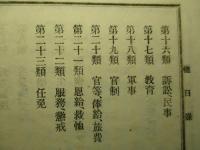 第十六類 訴訟、民事
第十七類 教育
第十八類 軍事
第十九類 官制
第二十類 官等、俸給、旅費
第二十一類 恩給、救恤
第二十二類 服務、懲戒
第二十三類 任免